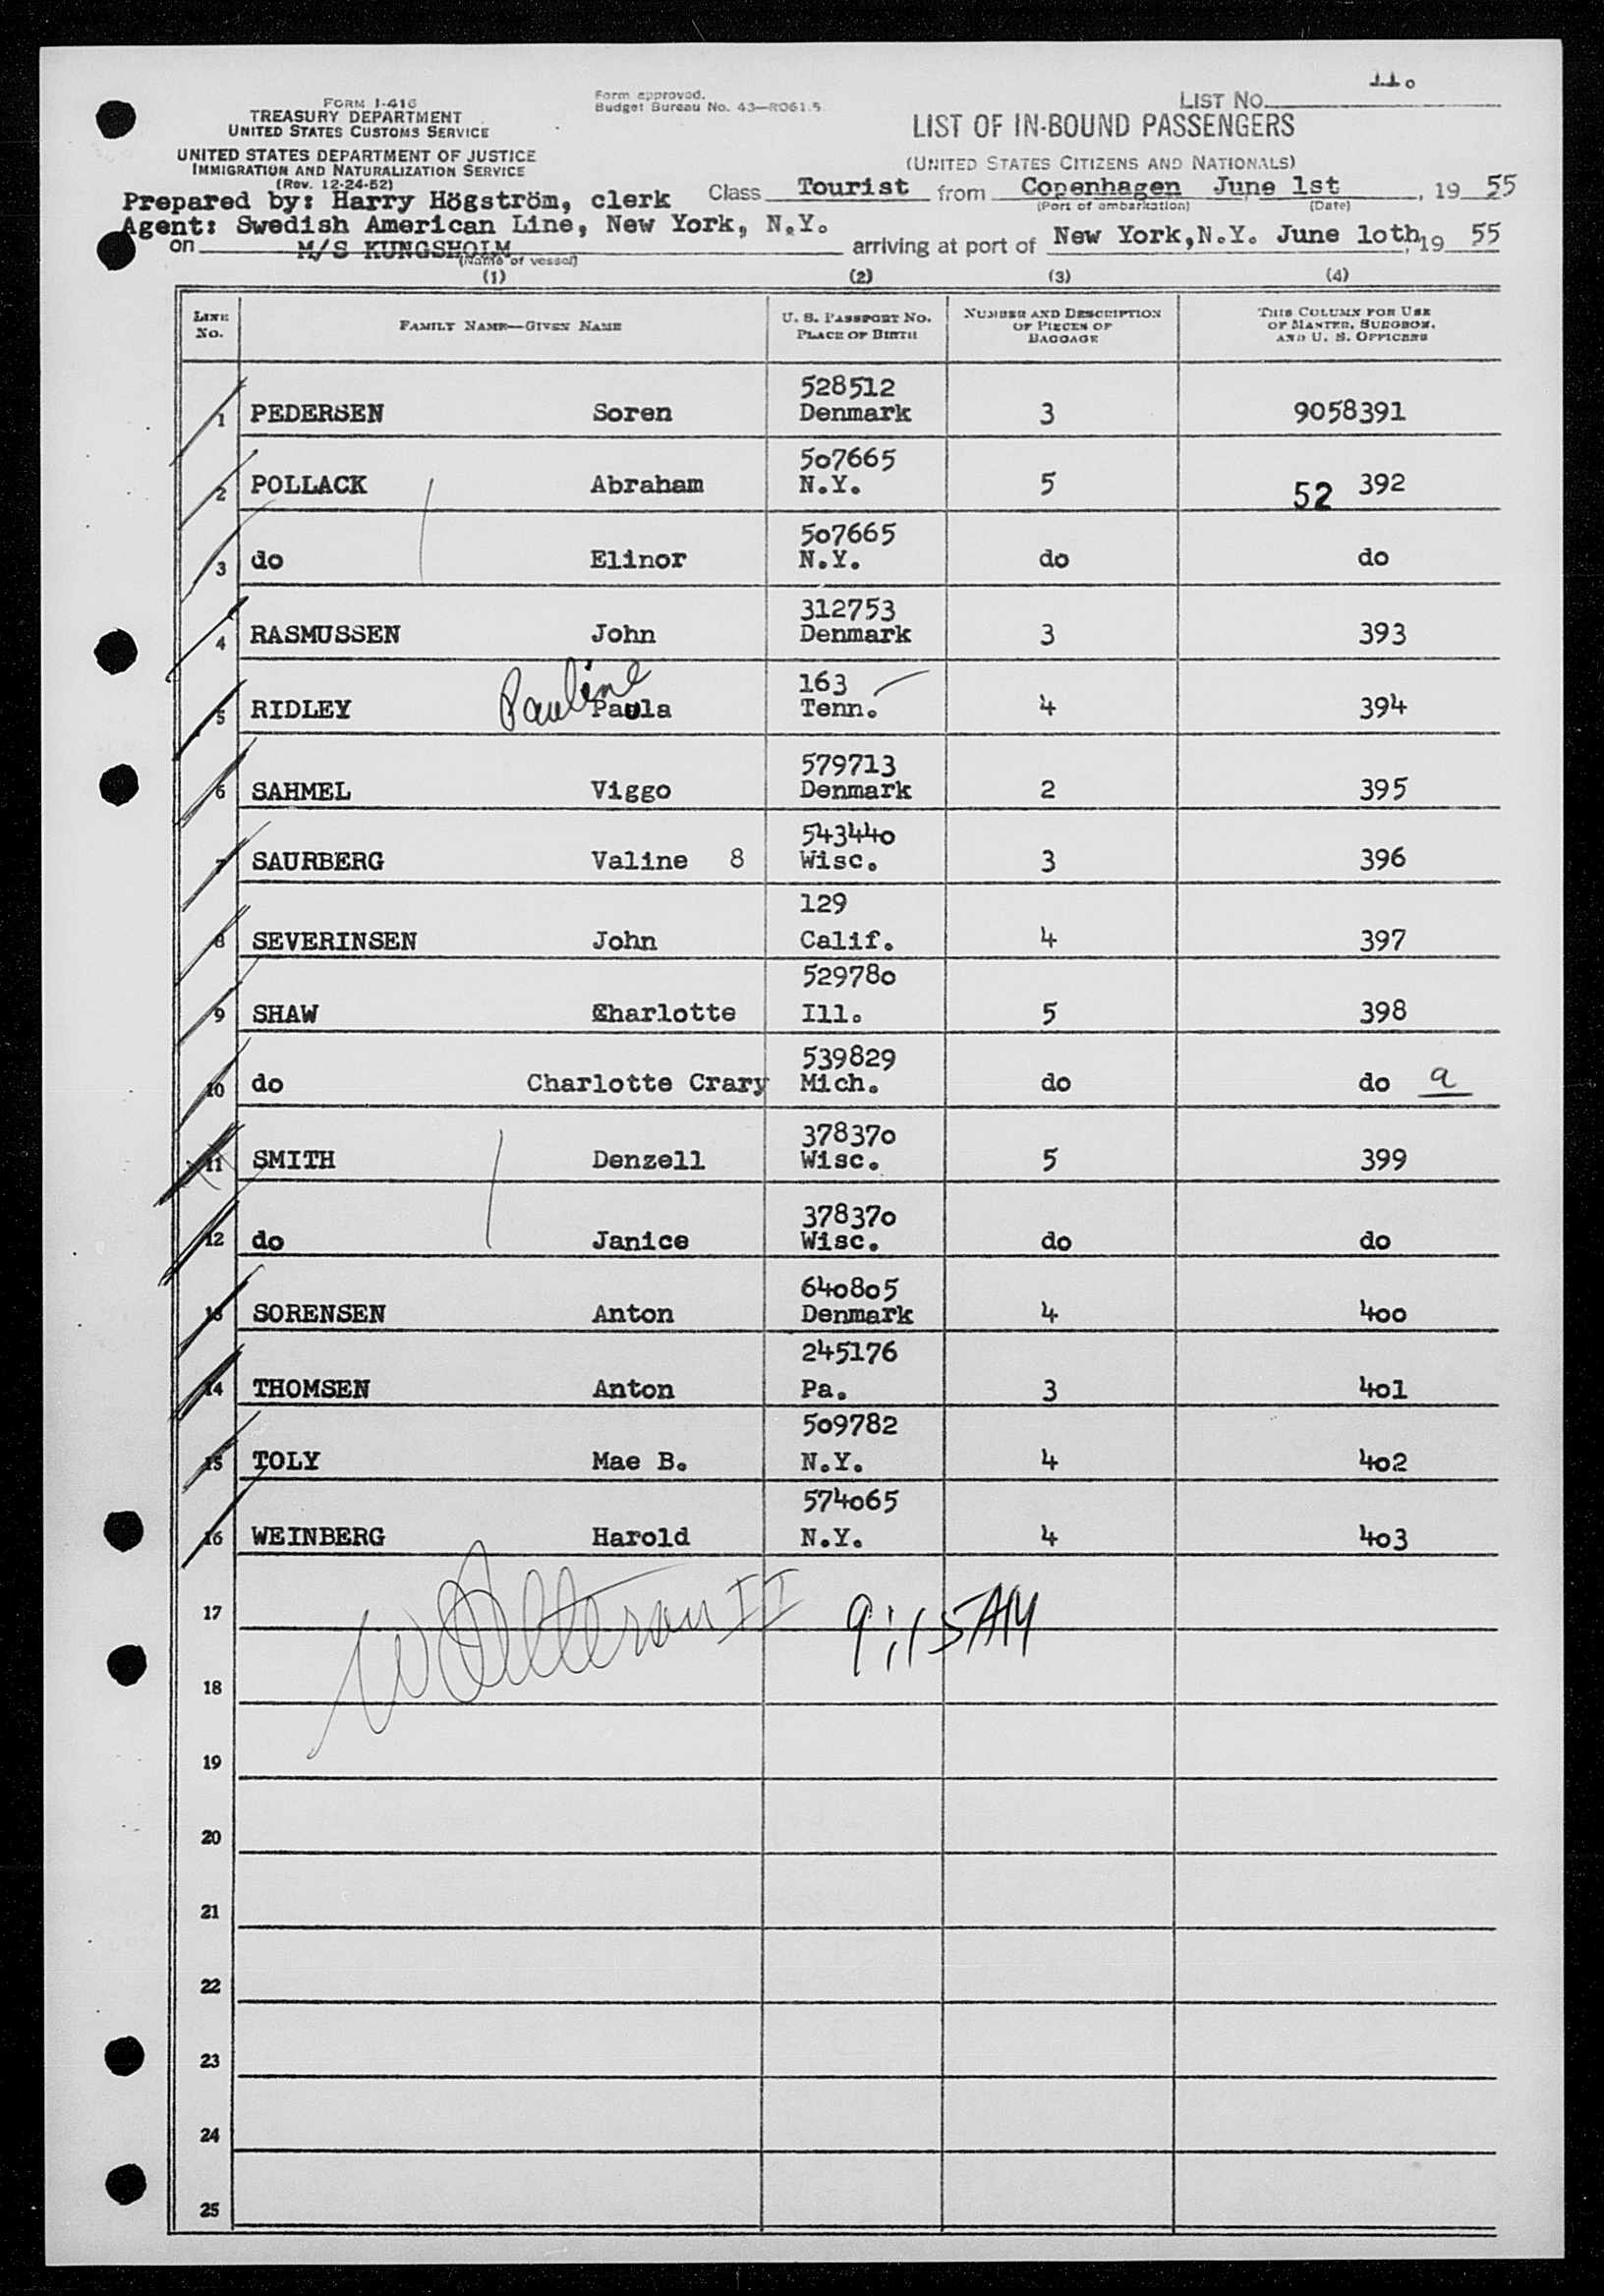 11.
FORM I-416
TREASURY DEPARTMENT
UNITED STATES CUSTOMS SERVICE
Form approved.
Budget Bureau No. 43—R061.5
LIST No.
LIST OF IN-BOUND PASSENGERS
UNITED STATES DEPARTMENT OF JUSTICE
IMMIGRATION AND NATURALIZATION SERVICE
(Rev. 12-24-52)
(UNITED STATES CITIZENS AND NATIONALS)
Prepared by: Harry Högström, clerk Class Tourist from Copenhagen June 1st, 19 55
(Port of embarkation) (Date)
Agent: Swedish American Line, New York, N.Y.
on M/S KUNGSHOLM arriving at port of New York,N.Y. June 1oth, 19 55
(Name of vessel)
(1) (2) (3) (4)
LINE No. FAMILY NAME—GIVEN NAME U. S. PASSPORT No. PLACE OF BIRTH NUMBER AND DESCRIPTION OF PIECES OF BAGGAGE THIS COLUMN FOR USE OF MASTER, SURGEON, AND U. S. OFFICERS
528512
1 PEDERSEN Soren Denmark 3 9058391
507665
2 POLLACK Abraham N.Y. 5 52 392
507665
3 do Elinor N.Y. do do
312753
4 RASMUSSEN John Denmark 3 393
Pauline 163
5 RIDLEY Paula Tenn. 4 394
579713
6 SAHMEL Viggo Denmark 2 395
543440
7 SAURBERG Valine 8 Wisc. 3 396
129
8 SEVERINSEN John Calif. 4 397
529780
9 SHAW Charlotte Ill. 5 398
539829
10 do Charlotte Crary Mich. do do a
378370
11 SMITH Denzell Wisc. 5 399
378370
12 do Janice Wisc. do do
640805
13 SORENSEN Anton Denmark 4 400
245176
14 THOMSEN Anton Pa. 3 401
509782
15 TOLY Mae B. N.Y. 4 402
574065
16 WEINBERG Harold N.Y. 4 403
II 9:15AM
17
18
19
20
21
22
23
24
25